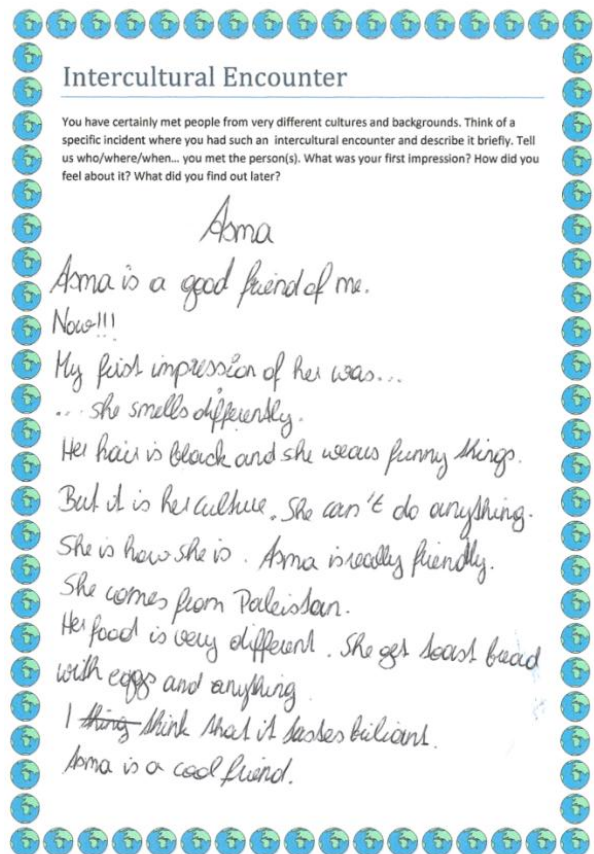 Intercultural Encounter
You have certainly met people from very different cultures and backgrounds. Think of a
specific incident where you had such an intercultural encounter and describe it briefly. Tell
us who/where/when... you met the person(s). What was your first impression? How did you
feel about it? What did you find out later?
Asma
Asma is a good friend of me.
Now!!!
My first impression of her was...
... she smells differently.
Her hair is black and she wears funny things.
But it is her culture. She can't do anything.
She is how she is. Asma is really friendly.
She comes from Pakistan.
Her food is very different. She get toast bread
with eggs and anything.
I thing think that it tastes briliant.
Asma is a cool friend.